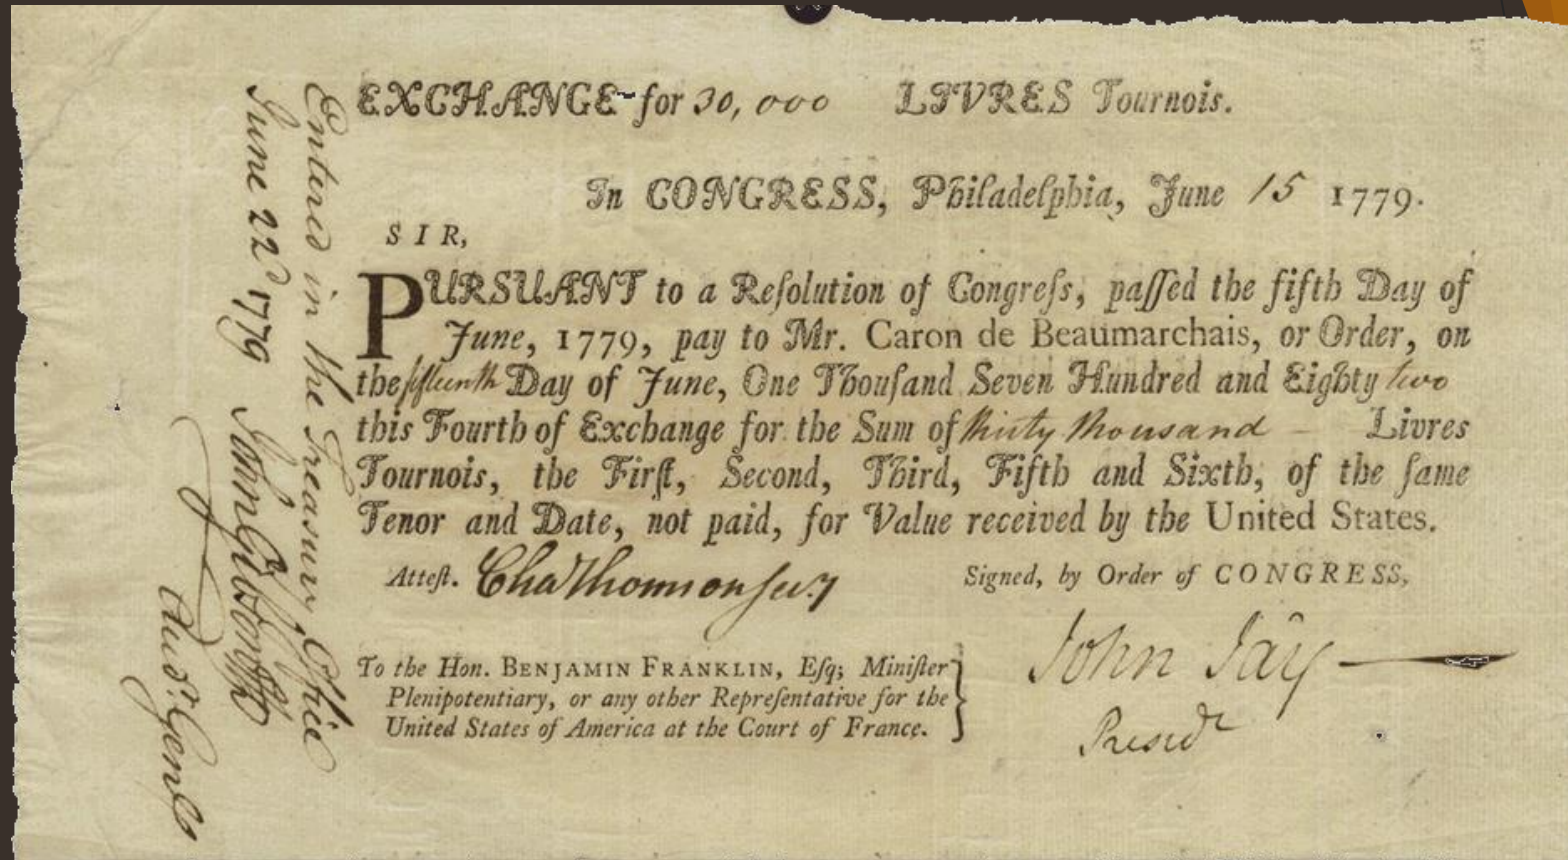 EXCHANGE for 30,000 LIVRES Tournois.
In CONGRESS, Philadelphia, June 15 1779.
SIR,
PURSUANT to a Reſolution of Congreſs, paſſed the fifth Day of
June, 1779, pay to Mr. Caron de Beaumarchais, or Order, on
the fifteenth Day of June, One Thouſand Seven Hundred and Eighty two
this Fourth of Exchange for the Sum of thirty thousand – Livres
Tournois, the Firſt, Second, Third, Fifth and Sixth, of the ſame
Tenor and Date, not paid, for Value received by the United States.
Atteſt. Cha Thomson secy
Signed, by Order of CONGRESS,
John Jay
Presidt
To the Hon. BENJAMIN FRANKLIN, Eſq; Miniſter
Plenipotentiary, or any other Repreſentative for the
United States of America at the Court of France.
Entered in the Treasury Office
June 22d 1779 John Gibson
Audr. Genl